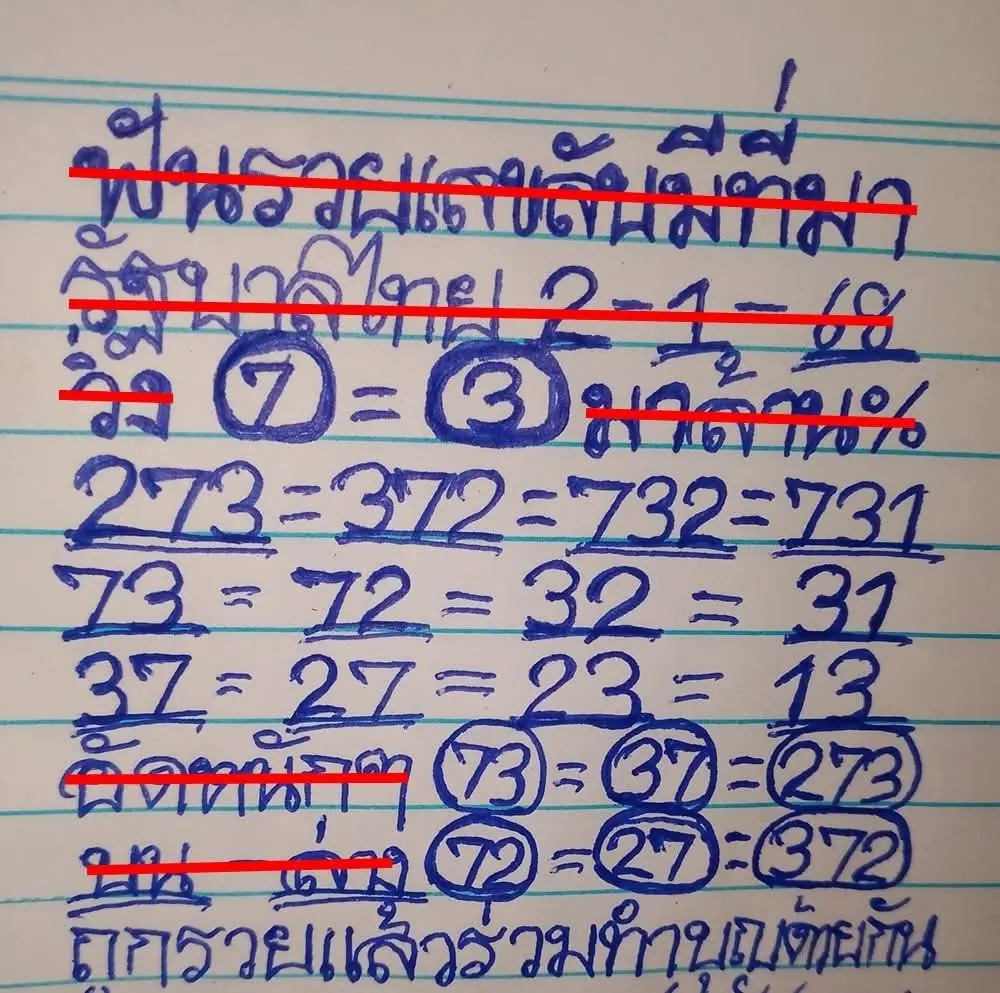 ฟันรวยเลขลับมีที่มา
รัฐบาลไทย 2-1-68
วิ่ง 7 = 3 มาล้าน%
273=372=732=731
73 = 72 = 32 = 31
37 = 27 = 23 = 13
อัดหนักๆ 73 = 37 = 273
บน - ล่าง 72 = 27 = 372
ถูกรวยแล้วร่วมทำบุญด้วยกัน